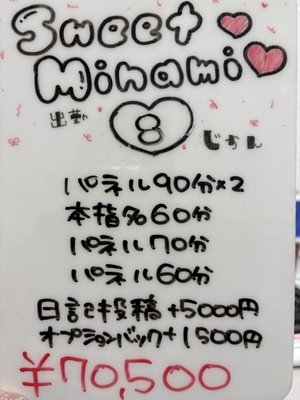 Sweet
Minami
出勤 8 じかん
パネル90分×2
本指名60分
パネル70分
パネル60分
日記投稿+5000円
オプションバック+1500円
¥70,500